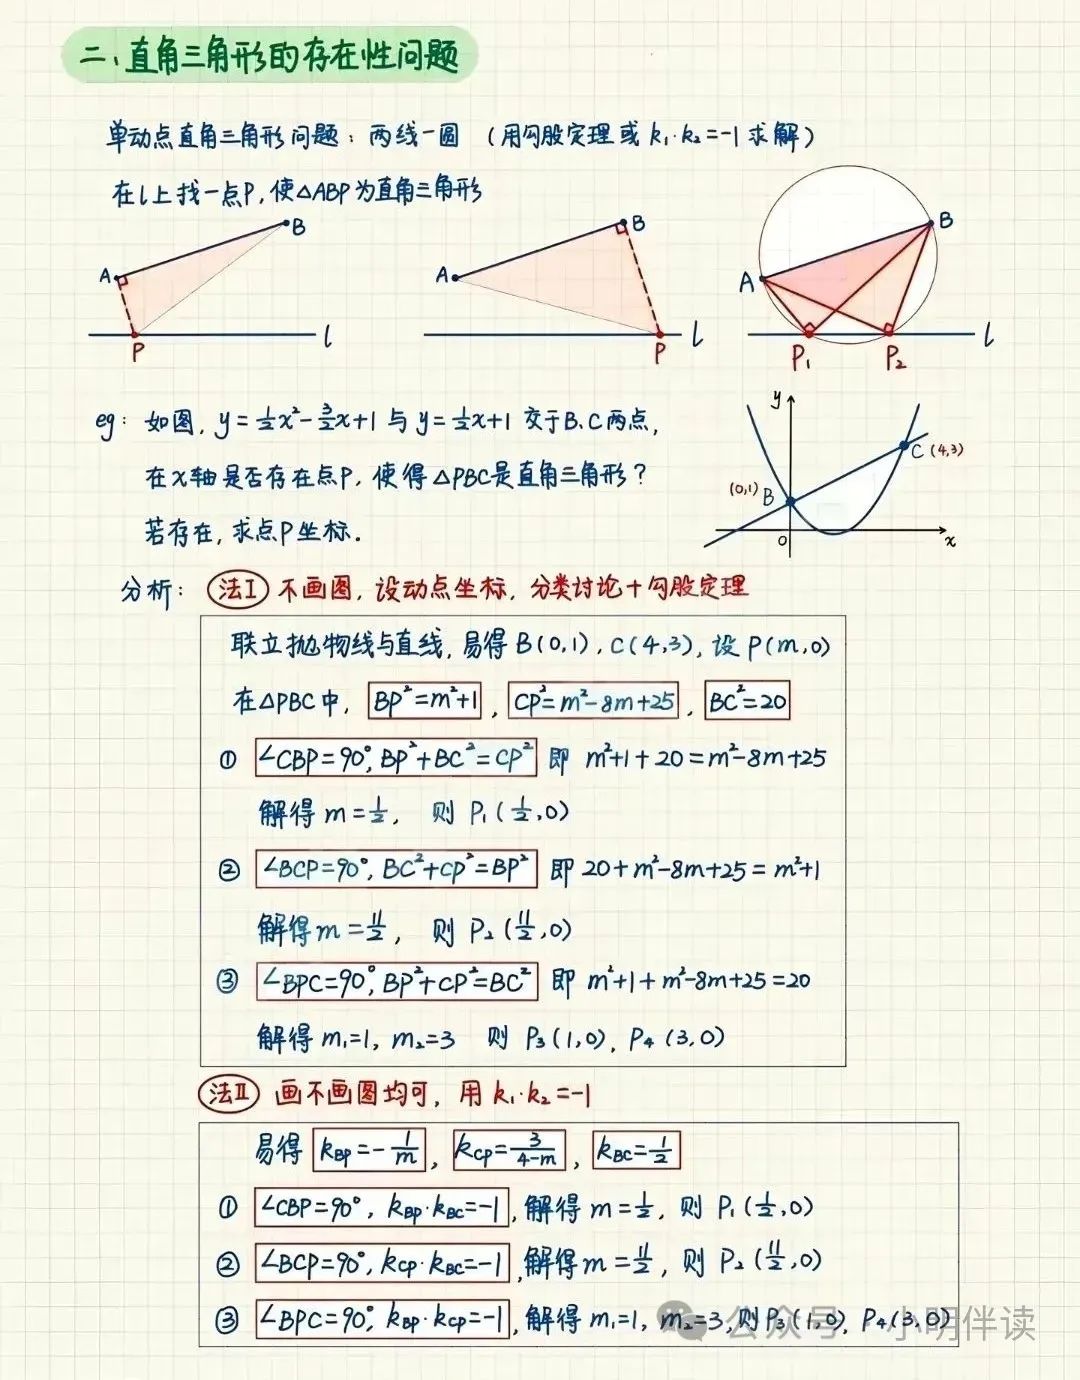 二、直角三角形的存在性问题
单动点直角三角形问题：两线一圆 （用勾股定理或 k₁·k₂=-1 求解）
在l上找一点P，使△ABP为直角三角形
A B P l
A B P l
A B P₁ P₂ l
eg：如图，y=½x²-3/2x+1 与 y=½x+1 交于B、C两点，
在x轴是否存在点P，使得△PBC是直角三角形？
若存在，求点P坐标．
y
C (4,3)
(0,1) B
O x
分析： 法Ⅰ 不画图，设动点坐标，分类讨论+勾股定理
联立抛物线与直线，易得B(0,1)，C(4,3)，设P(m,0)
在△PBC中， BP²=m²+1 ， CP²=m²-8m+25 ， BC²=20
① ∠CBP=90°, BP²+BC²=CP² 即 m²+1+20=m²-8m+25
解得 m=½， 则 P₁(½,0)
② ∠BCP=90°, BC²+CP²=BP² 即 20+m²-8m+25=m²+1
解得 m=11/2， 则 P₂(11/2,0)
③ ∠BPC=90°, BP²+CP²=BC² 即 m²+1+m²-8m+25=20
解得 m₁=1, m₂=3 则 P₃(1,0), P₄(3,0)
法Ⅱ 画不画图均可，用 k₁·k₂=-1
易得 k_BP=-1/m ， k_CP=3/(4-m) ， k_BC=½
① ∠CBP=90°, k_BP·k_BC=-1 , 解得 m=½, 则 P₁(½,0)
② ∠BCP=90°, k_CP·k_BC=-1 , 解得 m=11/2, 则 P₂(11/2,0)
③ ∠BPC=90°, k_BP·k_CP=-1 , 解得 m₁=1, m₂=3, 则 P₃(1,0), P₄(3,0)
公众号·小明伴读